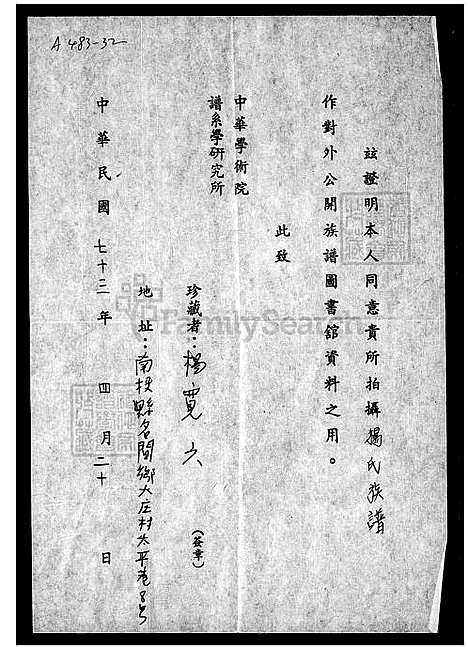 A 483-32
茲證明本人同意貴所拍攝楊氏族譜
作對外公開族譜圖書館資料之用。
此致
中華學術院
譜系學研究所
珍藏者：楊寬六
(簽章)
地址：南投縣名間鄉大庄村太平巷8号
中華民國七十三年 四月二十日
FamilySearch